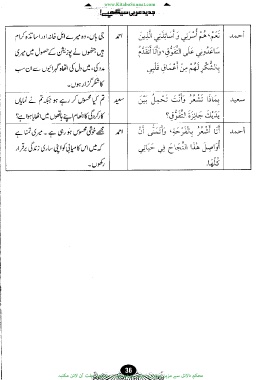 www.KitaboSunnat.com
جدید عربی سیکھیے!
أحمد
نَعَمْ، هُمْ أُسْرَتِي وَ أَسَاتِذَتِي الَّذِينَ
سَاعَدُونِي عَلَى التَّفَوُّقِ، وَأَنَا أَتَقَدَّمُ
بِالشُّكْرِ لَهُمْ مِنْ أَعْمَاقِ قَلْبِي
احمد
جی ہاں، وہ میرے اہل خانہ اور اساتذہ کرام
ہیں جنھوں نے پوزیشن کے حصول میں میری
مدد کی، میں دل کی اتھاہ گہرائیوں سے ان سب
کا شکر گزار ہوں۔
سعيد
بِمَاذَا تَشْعُرُ وَأَنْتَ تَحْمِلُ بَيْنَ
يَدَيْكَ جَائِزَةَ التَّفَوُّقِ؟
سعید
تم کیا محسوس کر رہے ہو جبکہ تم نے نمایاں
کارکردگی کا انعام اپنے ہاتھوں میں اٹھایا ہوا ہے؟
أحمد
أَنَا أَشْعُرُ بِالْفَرْحَةِ، وَأَتَمَنَّى أَنْ
أُوَاصِلَ هَذَا النَّجَاحَ فِي حَيَاتِي
كُلِّهَا.
احمد
مجھے خوشی محسوس ہو رہی ہے۔ میری تمنا ہے
کہ میں اس کامیابی کو اپنی ساری زندگی برقرار
رکھوں۔
36
محکم دلائل سے مزین آن لائن مکتبہ